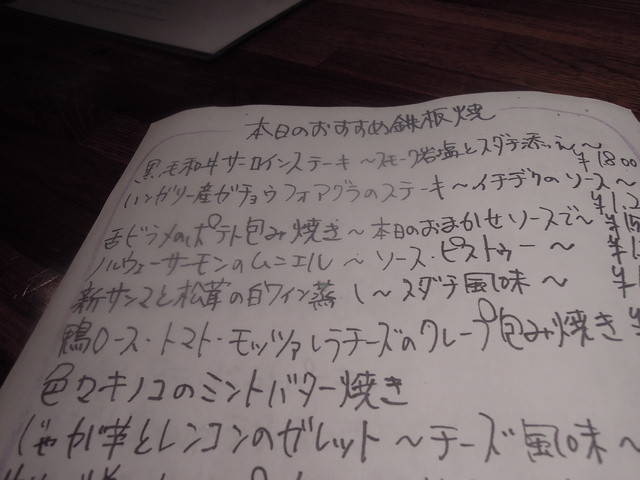 本日のおすすめ鉄板焼
黒毛和牛サーロインステーキ 〜スモーク岩塩とスダチ添え〜
¥1800
ハンガリー産ガチョウフォアグラのステーキ〜イチヂクのソース〜
¥1.2
舌ビラメのポテト包み焼き〜本日のおまかせソースで〜
ノルウェーサーモンのムニエル 〜ソース・ピストゥー〜
新サンマと松茸の白ワイン蒸し〜スダチ風味〜
鴨ロース・トマト・モッツァレラチーズのクレープ包み焼き
色々キノコのミントバター焼き
じゃが芋とレンコンのガレット 〜チーズ風味〜